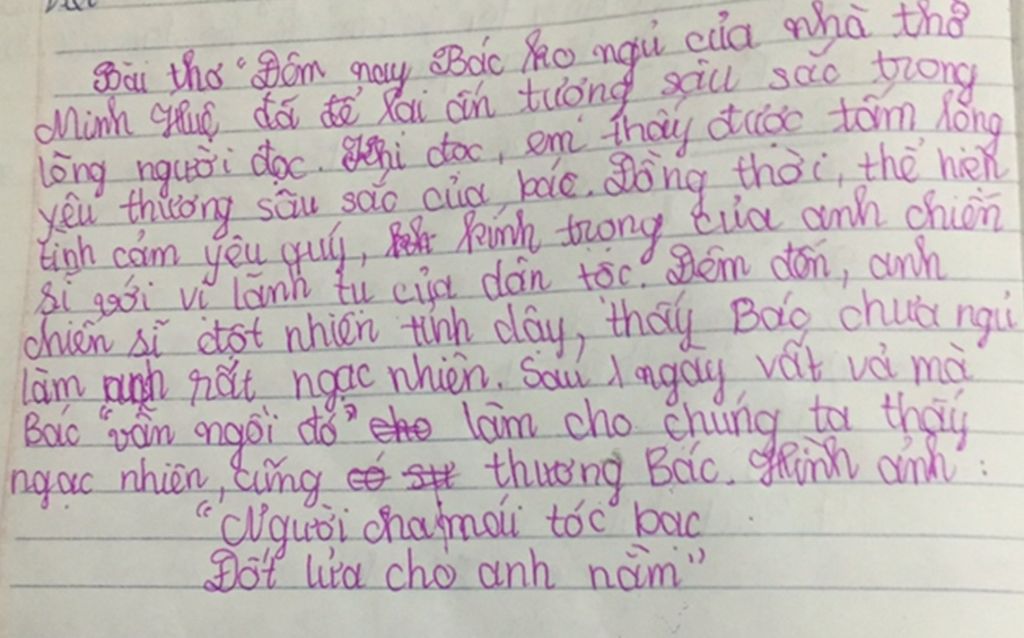 Bài thơ "Đêm nay Bác ko ngủ của nhà thơ
Minh Huệ đã để lại ấn tượng sâu sắc trong
lòng người đọc. Khi đọc, em thấy được tấm lòng
yêu thương sâu sắc của bác. Đồng thời, thể hiện
tình cảm yêu quý, kính trọng của anh chiến
sĩ với vị lãnh tụ của dân tộc. Đêm đến, anh
chiến sĩ đột nhiên tỉnh dậy, thấy Bác chưa ngủ
làm anh rất ngạc nhiên. Sau 1 ngày vất vả mà
Bác "vẫn ngồi đó" cho làm cho chúng ta thấy
ngạc nhiên, cũng có thương Bác. Hình ảnh :
"Người cha mái tóc bạc
Đốt lửa cho anh nằm"